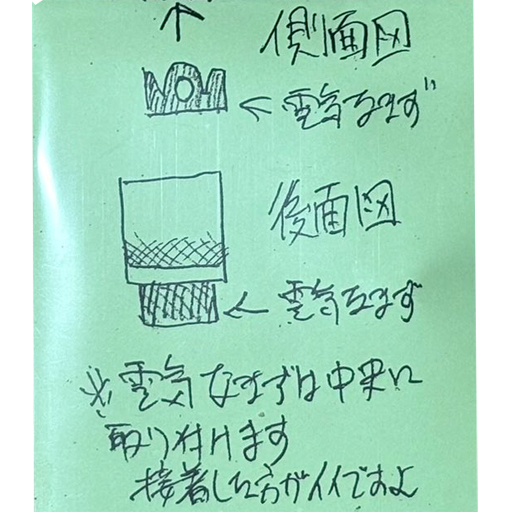 側面図
電気なまず"
後面図
電気なまず
※電気なまずは中央に
取り付けます
接着した方がイイですよ